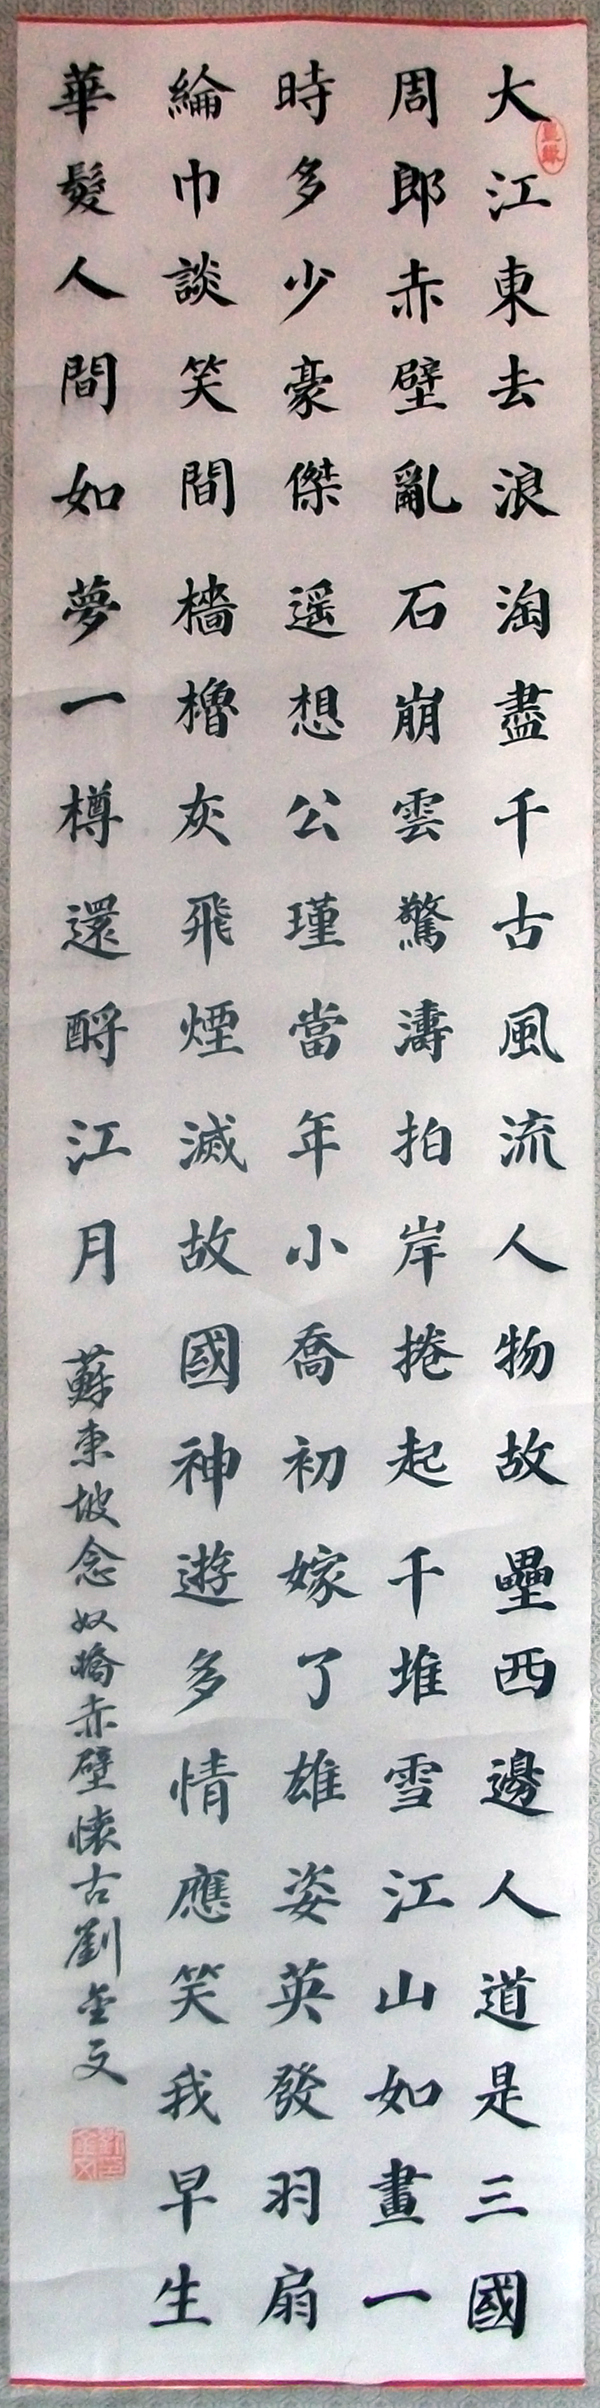 大江東去浪淘盡千古風流人物故壘西邊人道是三國
周郎赤壁亂石崩雲驚濤拍岸捲起千堆雪江山如畫一
時多少豪傑遥想公瑾當年小喬初嫁了雄姿英發羽扇
綸巾談笑間檣櫓灰飛煙滅故國神遊多情應笑我早生
華髮人間如夢一樽還酹江月
蘇東坡念奴嬌赤壁懷古劉金文